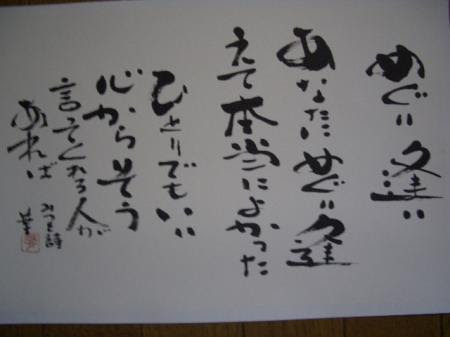 めぐり逢い
あなたにめぐり逢
えて本当によかった
ひとりでもいい
心からそう
言ってくれる人が
あれば
みつを詩